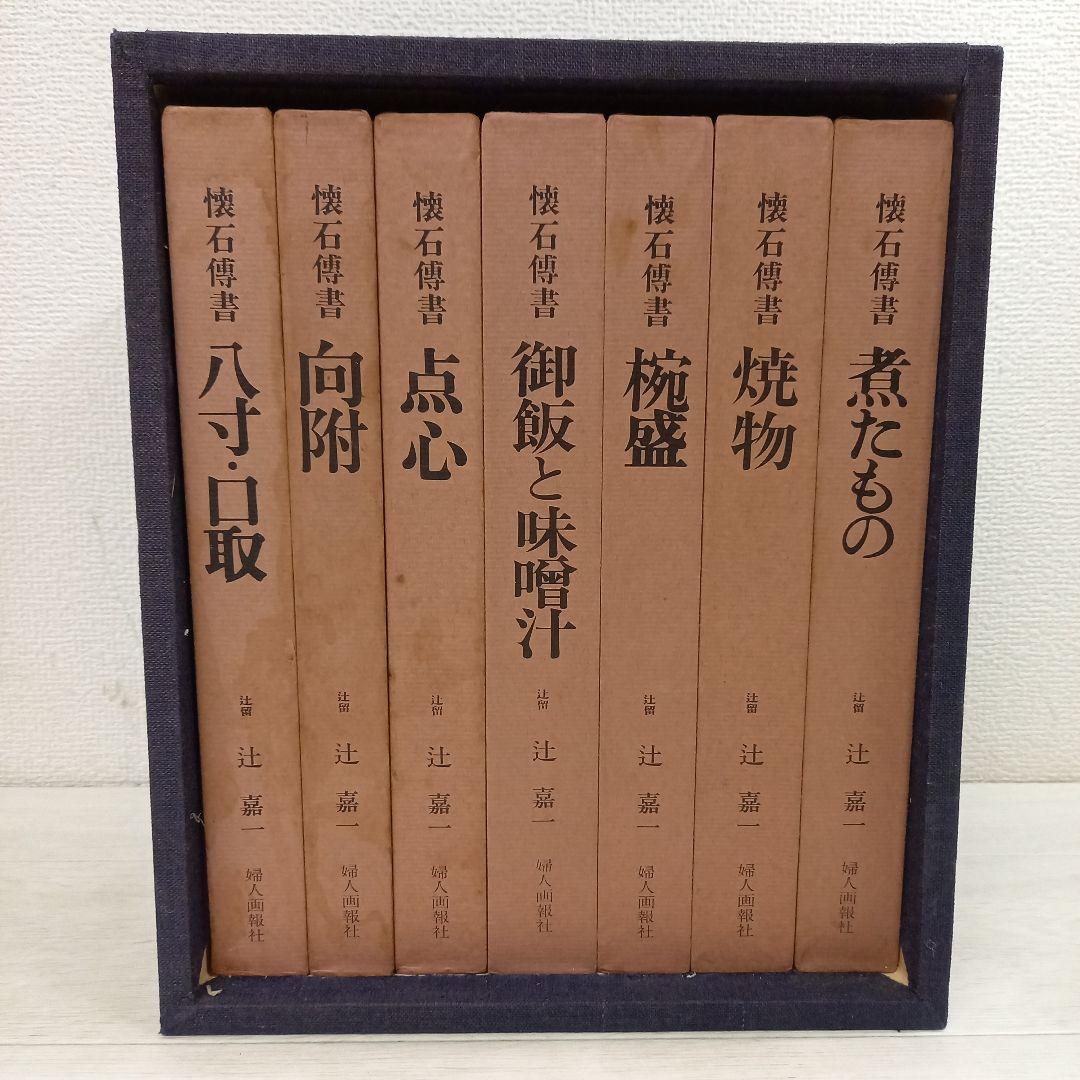 懐石傳書
八寸・口取
辻留
辻嘉一
婦人画報社
懐石傳書
向附
辻留
辻嘉一
婦人画報社
懐石傳書
点心
辻留
辻嘉一
婦人画報社
懐石傳書
御飯と味噌汁
辻留
辻嘉一
婦人画報社
懐石傳書
椀盛
辻留
辻嘉一
婦人画報社
懐石傳書
焼物
辻留
辻嘉一
婦人画報社
懐石傳書
煮たもの
辻留
辻嘉一
婦人画報社